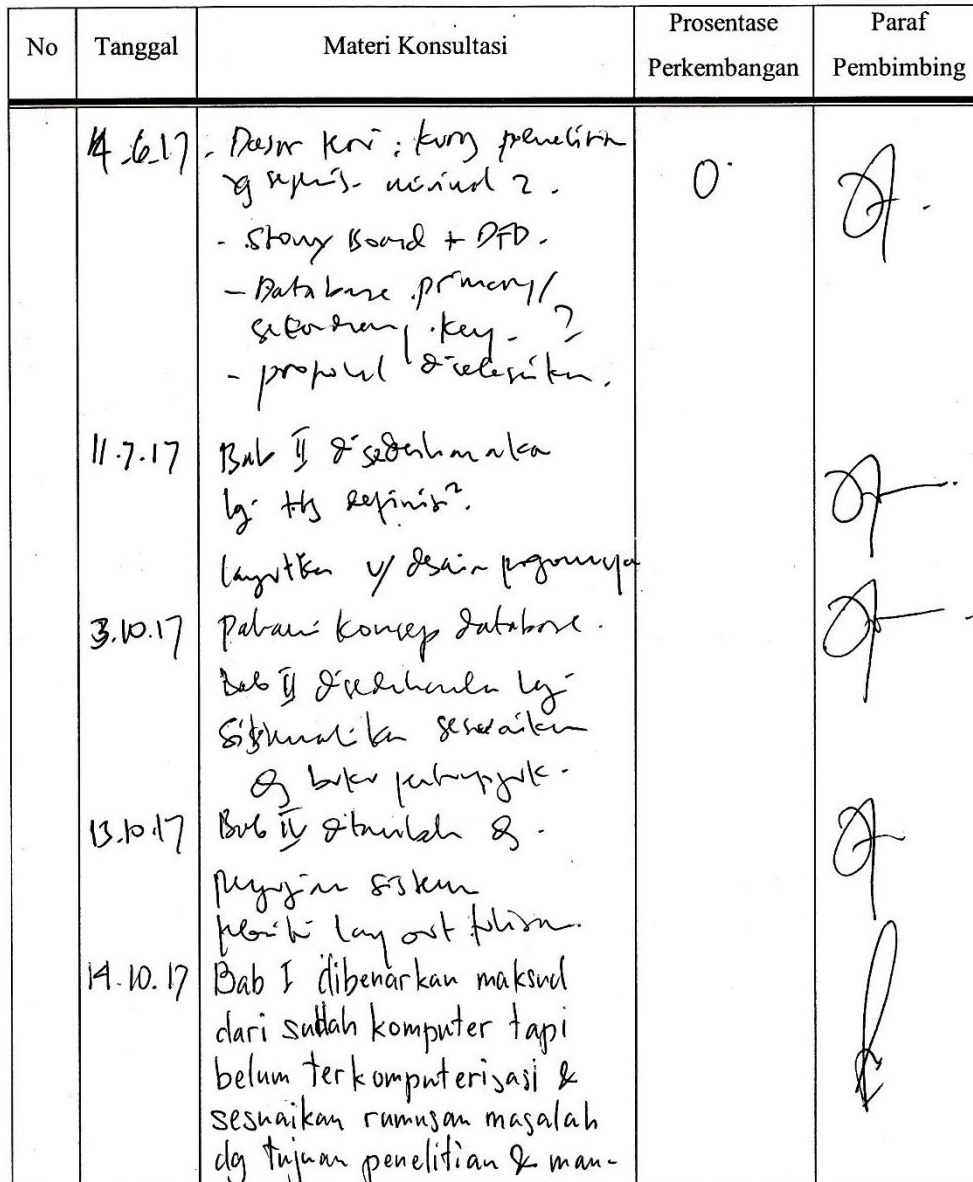 No Tanggal Materi Konsultasi Prosentase Perkembangan Paraf Pembimbing
14.6.17 - Dasar teori :
yg
- Story Board + DFD.
- Database primary/
sekondary key - ?
- proposal diselesaikan.
11.7.17 Bab II disederhanakan
lg ttg definisi2.
lanjutkan u/ desain programnya
3.10.17 Pahami konsep database.
Bab II disederhanakan lg
Sistematika sesuaikan
dg buku petunjuk.
13.10.17 Bab IV ditambah dg
pengujian sistem
lay out tulisan.
14.10.17 Bab I dibenarkan maksud
dari sudah komputer tapi
belum terkomputerisasi &
sesuaikan rumusan masalah
dg tujuan penelitian & man-